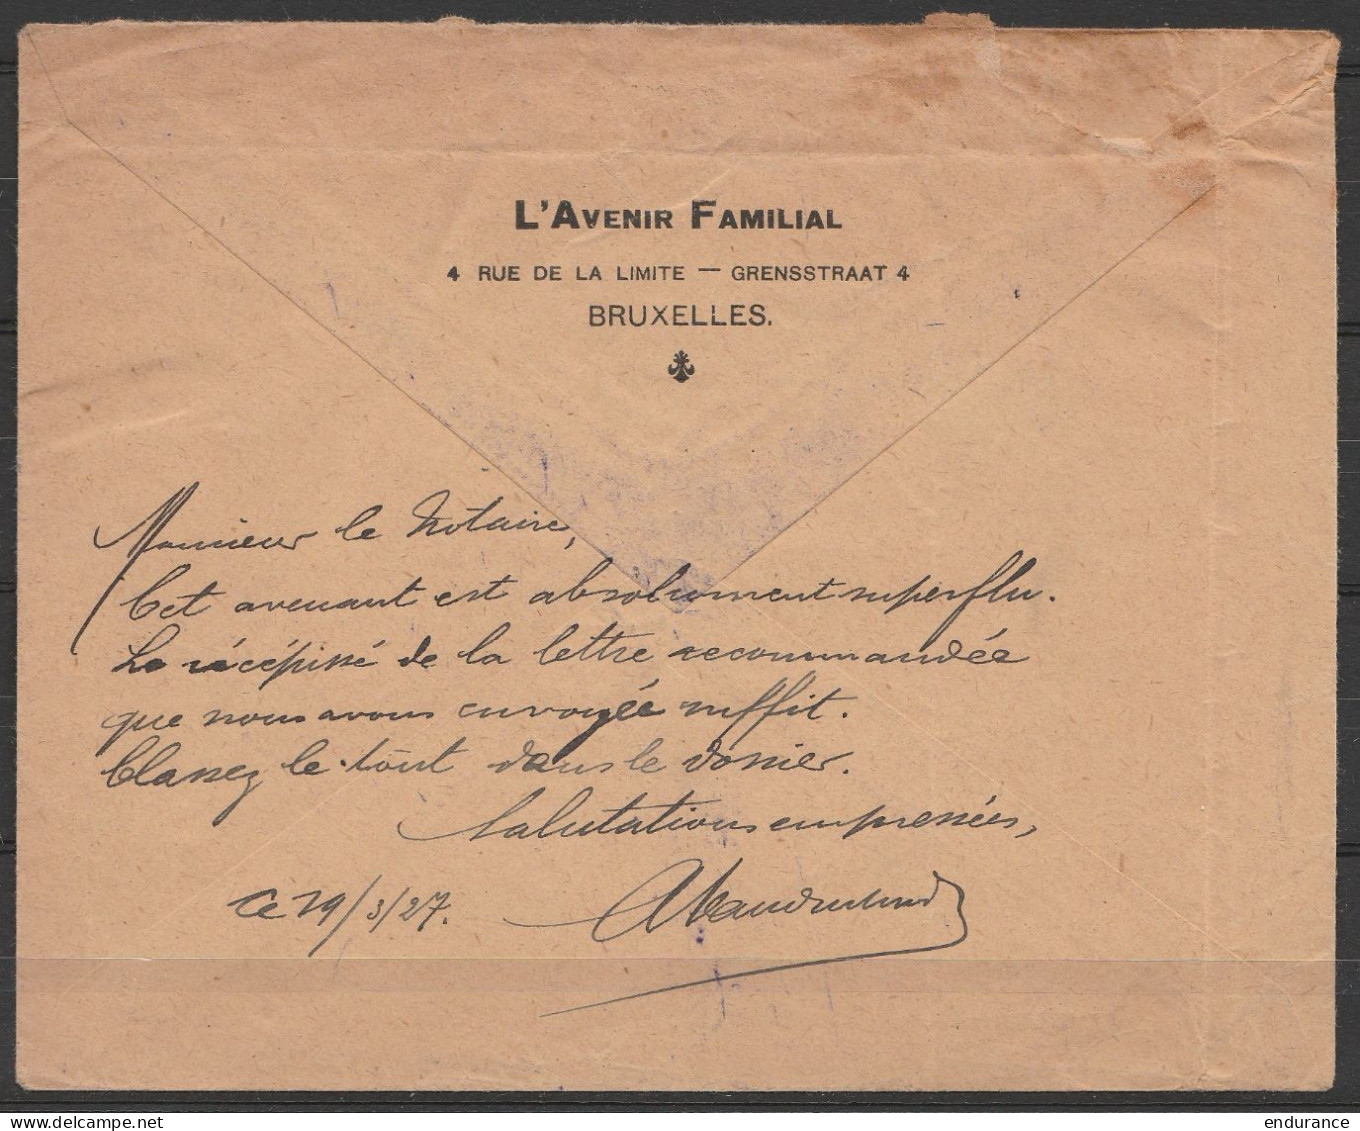 L'AVENIR FAMILIAL
4 RUE DE LA LIMITE — GRENSSTRAAT 4
BRUXELLES.
Monsieur le Notaire,
Cet avenant est absolument superflu.
Le récépissé de la lettre recommandée
que nous avons envoyée suffit.
Classez le tout dans le dossier.
Salutations empressées,
Ce 29/3/27.
endurance